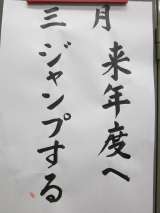 月 来年度へ
三 ジャンプする